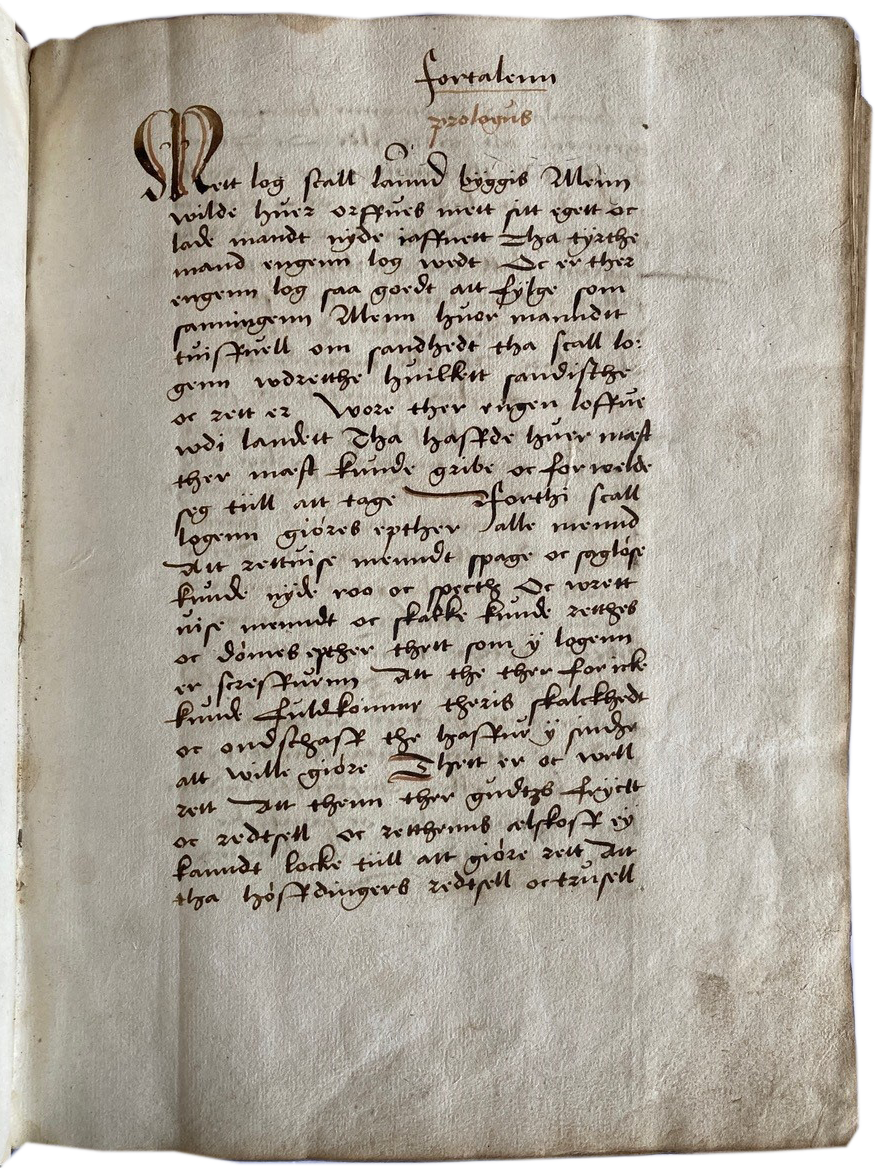 fortalenn
prologus
Mett log scall lannd byggis Menn
wilde huer orffues mett sitt egett oc
lade mandt nyde iaffnett Tha tyrthe
mand engenn log wedt Oc er ther
engenn log saa goedt att fylge som
sanningenn Menn huor manndtt
tuiffuell om sandhedt tha scall lo:
genn wdretthe huilkett sandische
oc rett er Wore ther engen loffue
wdi landett Tha haffde huer mæst
ther mæst kunde gribe oc forwelde
seg tiill att tage Forthi scall
logenn giøres epther alle mennd
Att rettuise menndt spage oc sagløse
kunde nyde roo oc specthz Oc wrett
uise menndt oc skalke kunde retthes
oc dømes epther thett som y logenn
er screffuenn Att the ther for icke
kunde fuldkomme theris skalckhedt
oc ondschaff the haffue y sindhe
att wille giøre Thett er oc well
rett Att thenn ther gudtzs fryctt
oc redtsell oc retthenns ælskoff ey
kanndt locke tiill att giøre rett Att
tha høffdingers redtsell oc trusell